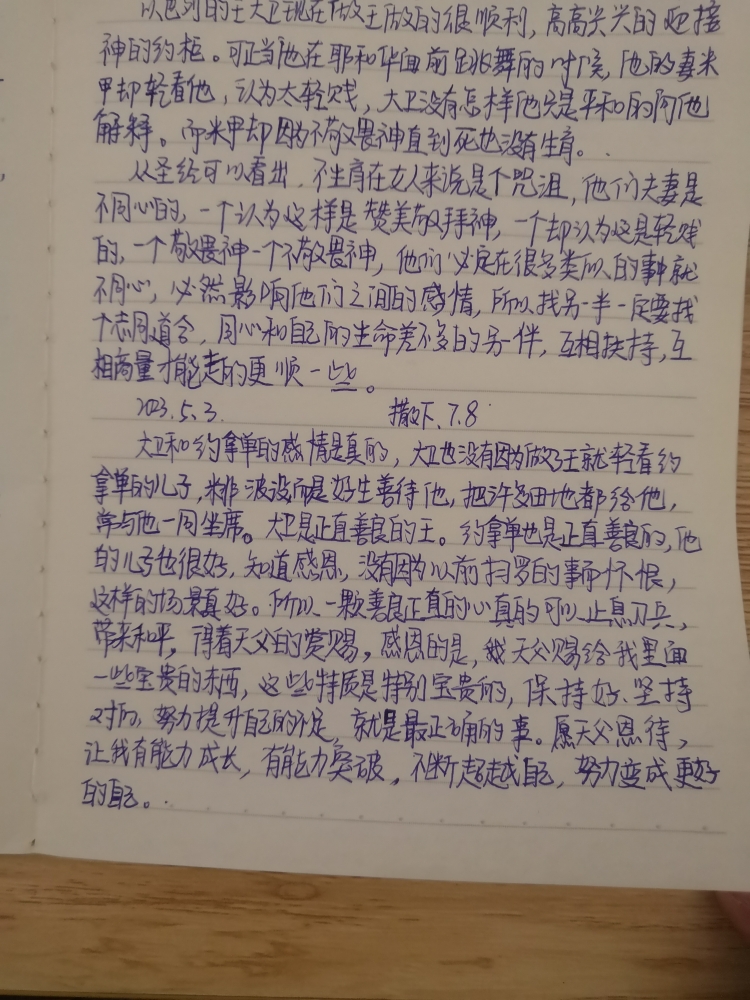 以色列的王大卫现在做王做的很顺利，高高兴兴的迎接
神的约柜。可正当他在耶和华面前跳舞的时候，他的妻米
甲却轻看他，认为太轻贱，大卫没有怎样他只是平和的向他
解释。而米甲却因为不敬畏神直到死也没有生育。
从圣经可以看出，不生育在女人来说是个咒诅，他们夫妻是
不同心的，一个认为这样是赞美敬拜神，一个却认为这是轻贱
的，一个敬畏神一个不敬畏神，他们必定在很多类似的事中就
不同心，必然影响他们之间的感情，所以找另一半一定要找
个志同道合，同心和自己的生命差不多的另一伴，互相扶持，互
相商量才能走的更顺一些。
2023.5.3. 撒下、7.8
大卫和约拿单的感情是真的，大卫也没有因为做了王就轻看约
拿单的儿子，米非波设而是好生善待他，把许多田地都给他，
常与他一同坐席。大卫是正直善良的王。约拿单也是正直善良的，他
的儿子也很好，知道感恩，没有因为以前扫罗的事而怀恨，
这样的场景真好。所以一颗善良正直的心真的可以止息刀兵，
带来和平，得着天父的赏赐。感恩的是，我天父赐给我里面
一些宝贵的东西，这些特质是特别宝贵的，保持好、坚持
对的，努力提升自己的不足，就是最正确的事。愿天父恩待，
让我有能力成长，有能力突破，不断超越自己，努力变成更好
的自己。